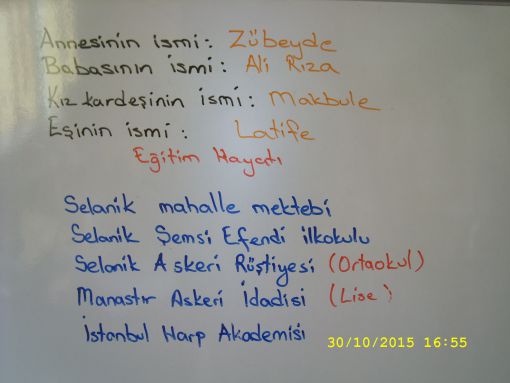 Annesinin ismi: Zübeyde
Babasının ismi: Ali Rıza
Kız kardeşinin ismi: Makbule
Eşinin ismi: Latife
Eğitim Hayatı
Selanik mahalle mektebi
Selanik Şemsi Efendi ilkokulu
Selanik Askeri Rüştiyesi (Ortaokul)
Manastır Askeri İdadisi (Lise)
İstanbul Harp Akademisi
30/10/2015 16:55